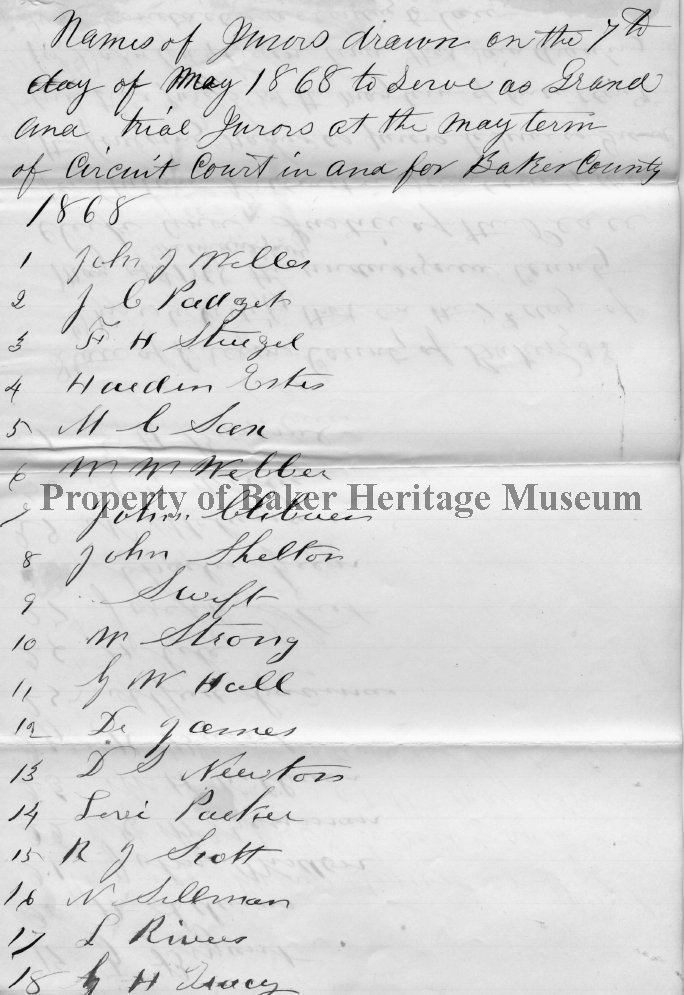 Names of Jurors drawn on the 7th
day of May 1868 to serve as Grand
and trial Jurors at the May term
of Circuit Court in and for Baker County
1868
1 John J Welles
2 J C Padget
3 F H Stuegel
4 Harden Estes
5 M C Sax
6 M M Webber
Property of Baker Heritage Museum
7 John
8 John Shelton
9 Swift
10 M Strong
11 G W Hall
12 De James
13 D S Newton
14 Levi Packer
15 R J Scott
16 N Sillman
17 L Rivers
18 G H Tracy